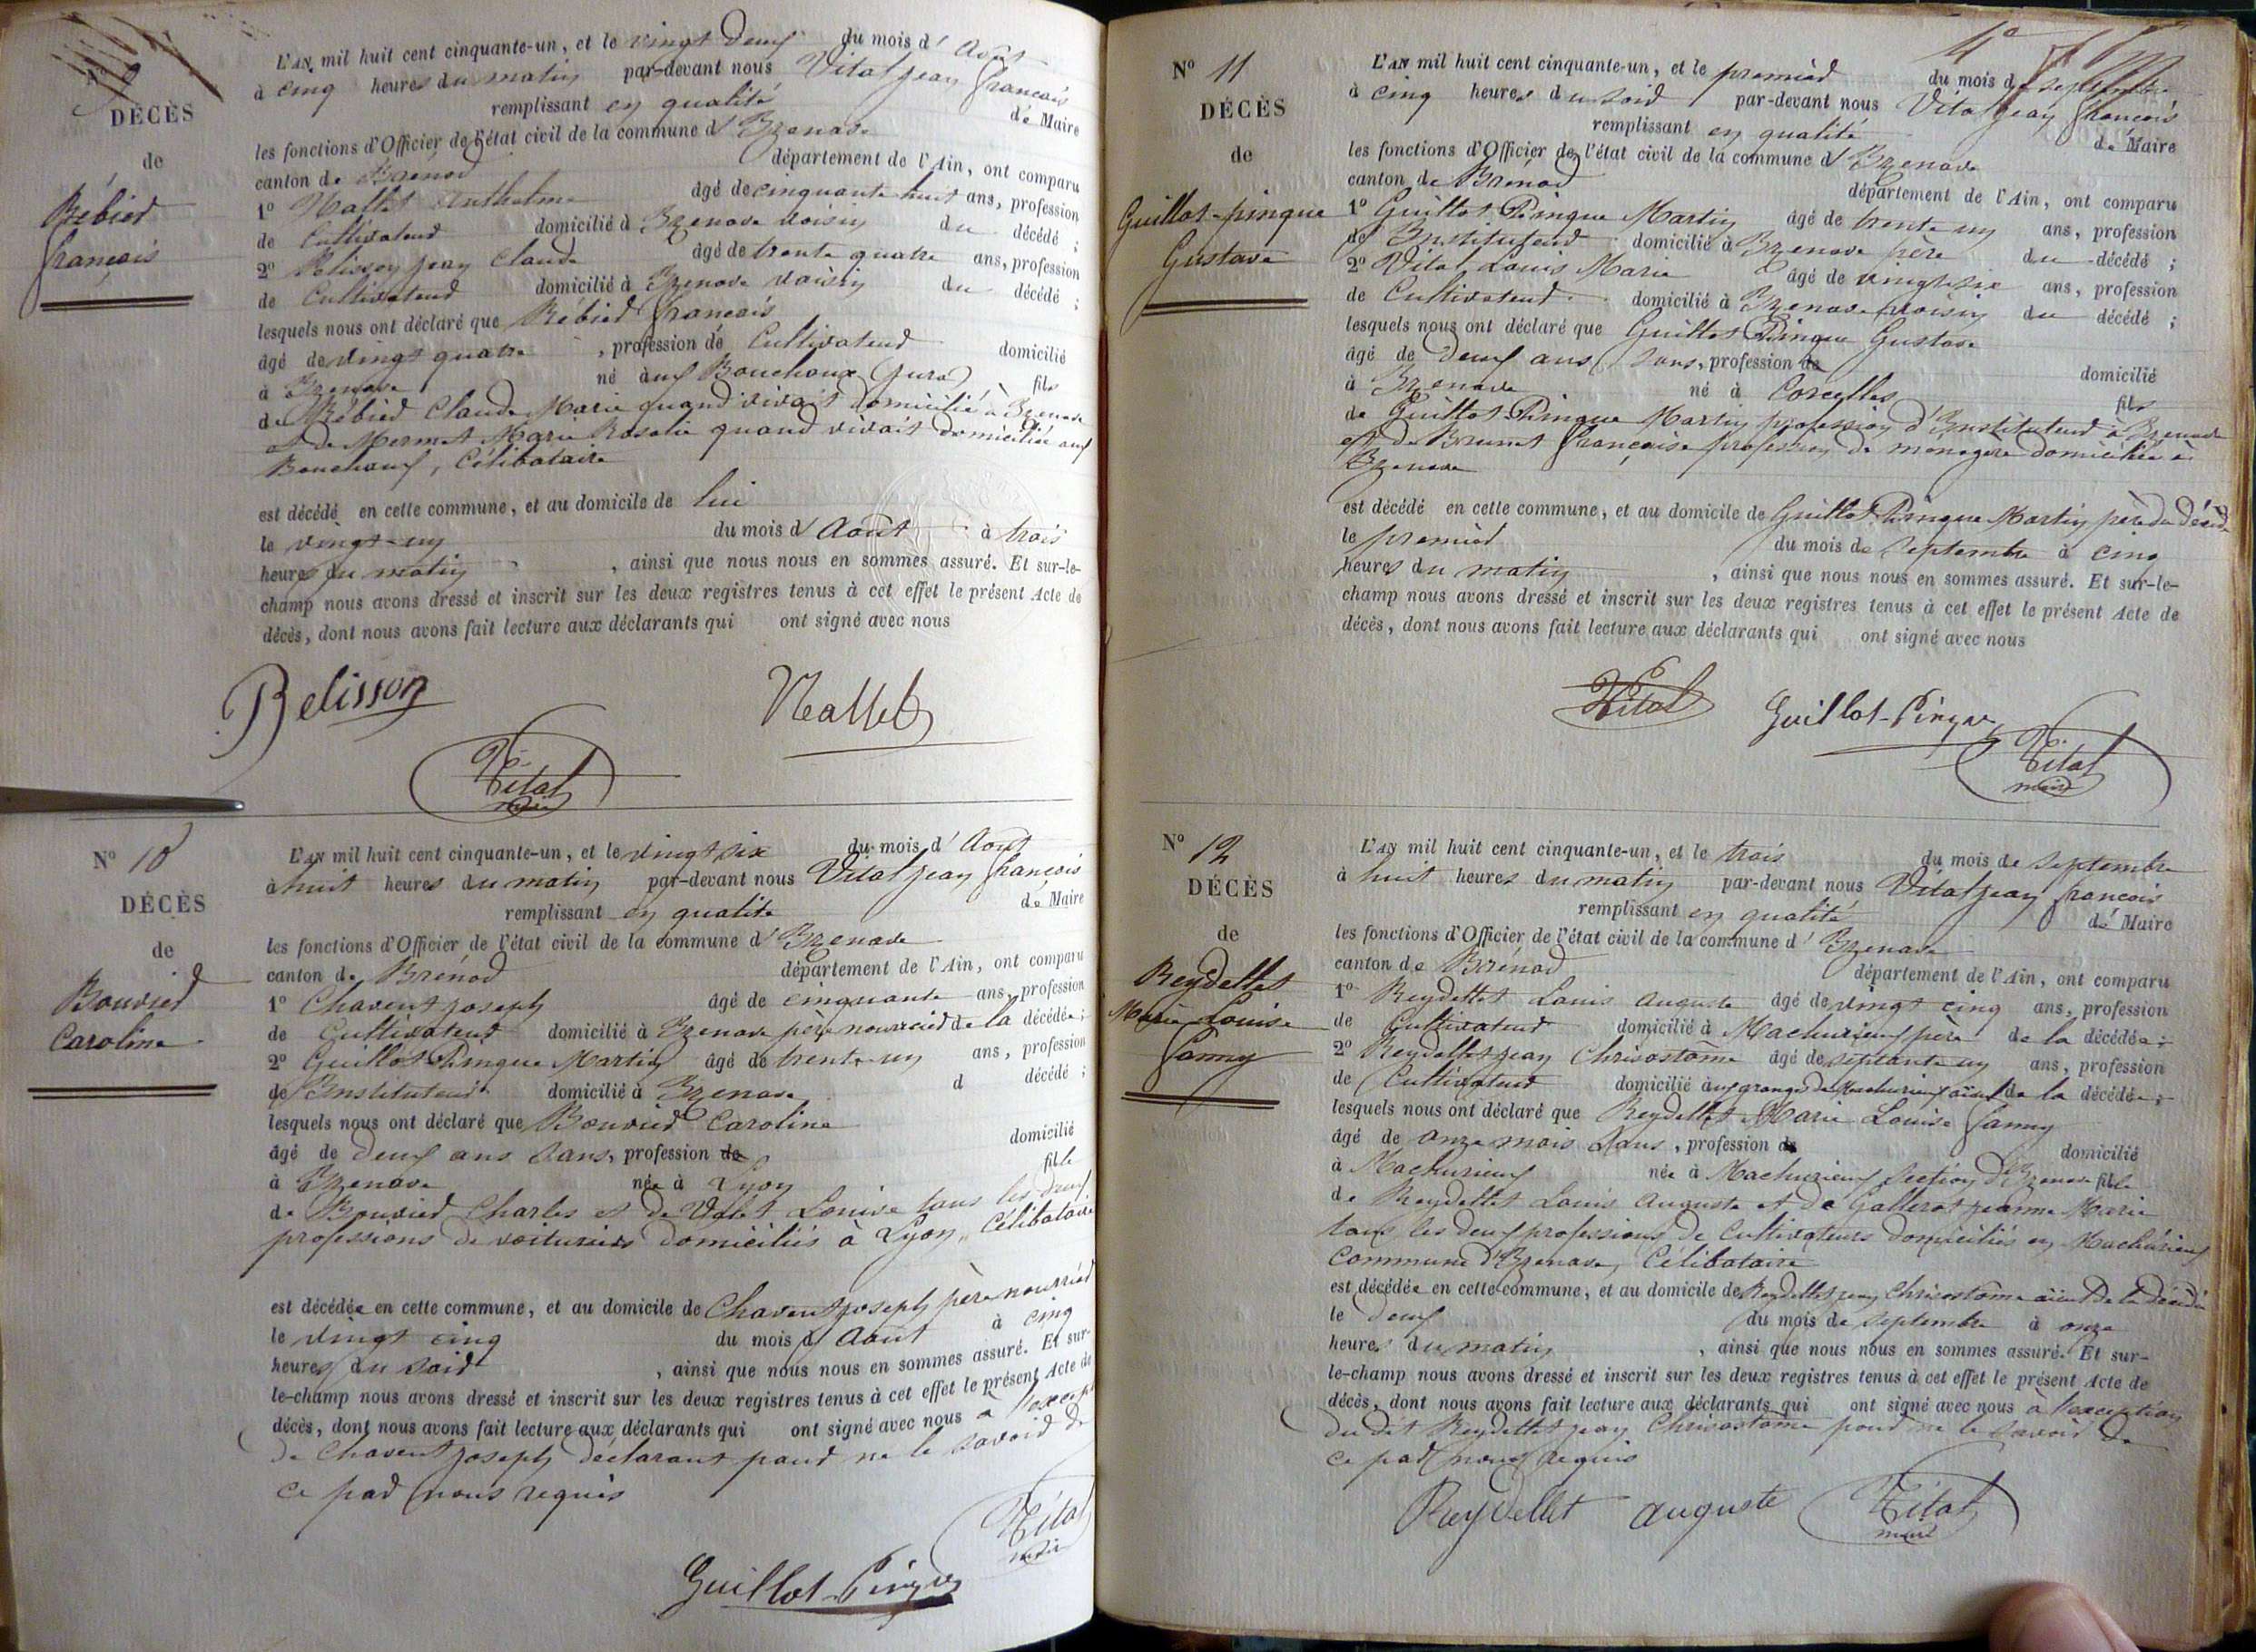 N° 9
DÉCÈS
de
Rébier
françois
L'AN mil huit cent cinquante-un, et le vingt deux du mois d' Août
à cinq heures du matin par-devant nous Vital jean françois
remplissant en qualité de Maire
les fonctions d'Officier de l'état civil de la commune d' Izenave
canton de Brénod département de l'Ain, ont comparu
1° Nallet Anthelme âgé de cinquante huit ans, profession
de Cultivateur domicilié à Izenave voisin du décédé ;
2° Pélisson jean Claude âgé de trente quatre ans, profession
de Cultivateur domicilié à Izenave voisin du décédé ;
lesquels nous ont déclaré que Rébier françois
âgé de vingt quatre , profession de Cultivateur domicilié
à Izenave né aux Bouchoux (jura) fils
de Rébier Claude Marie quand vivait domicilié à Izenave
et de Mermet Marie Rosalie quand vivait domiciliée aux
Bouchoux, Célibataire
est décédé en cette commune, et au domicile de lui
le vingt-un du mois d' Août à trois
heures du matin , ainsi que nous nous en sommes assuré. Et sur-le-
champ nous avons dressé et inscrit sur les deux registres tenus à cet effet le présent Acte de
décès, dont nous avons fait lecture aux déclarants qui ont signé avec nous
Belisson Nallet
Vital
maire
N° 10
DÉCÈS
de
Bouvier
Caroline
L'AN mil huit cent cinquante-un, et le vingt six du mois d' Août
à huit heures du matin par-devant nous Vital jean françois
remplissant en qualité de Maire
les fonctions d'Officier de l'état civil de la commune d' Izenave
canton de Brénod département de l'Ain, ont comparu
1° Chavent joseph âgé de cinquante ans, profession
de Cultivateur domicilié à Izenave père nourricier de la décédée ;
2° Guillot Pingue Martin âgé de trente-un ans, profession
de Instituteur domicilié à Izenave d décédé ;
lesquels nous ont déclaré que Bouvier Caroline
âgé de deux ans sans, profession de domicilié
à Izenave née à Lyon fille
de Bouvier Charles et de Louise tous les deux
professions de voituriers domiciliés à Lyon, Célibataire
est décédée en cette commune, et au domicile de Chavent joseph père nourricier
le vingt cinq du mois d' Août à cinq
heures du soir , ainsi que nous nous en sommes assuré. Et sur-
le-champ nous avons dressé et inscrit sur les deux registres tenus à cet effet le présent Acte de
décès, dont nous avons fait lecture aux déclarants qui ont signé avec nous à l'except
de Chavent joseph déclarant pour ne le savoir de
ce par nous requis
Vital
maire
Guillot-Pingue
4°
N° 11
DÉCÈS
de
Guillot-pingue
Gustave
L'AN mil huit cent cinquante-un, et le premier du mois de septembre
à cinq heures du soir par-devant nous Vital jean françois
remplissant en qualité de Maire
les fonctions d'Officier de l'état civil de la commune d' Izenave
canton de Brénod département de l'Ain, ont comparu
1° Guillot Pingue Martin âgé de trente un ans, profession
de Instituteur domicilié à Izenave père du décédé ;
2° Vital Louis Marie âgé de vingt six ans, profession
de Cultivateur domicilié à Izenave voisin du décédé ;
lesquels nous ont déclaré que Guillot Pingue Gustave
âgé de deux ans sans, profession de domicilié
à Izenave né à Corcelles fils
de Guillot-Pingue Martin profession d'Instituteur à Izenave
et de Brunet françoise profession de ménagère domiciliée à
Izenave
est décédé en cette commune, et au domicile de Guillot Pingue Martin père du décédé
le premier du mois de septembre à cinq
heures du matin , ainsi que nous nous en sommes assuré. Et sur-le-
champ nous avons dressé et inscrit sur les deux registres tenus à cet effet le présent Acte de
décès, dont nous avons fait lecture aux déclarants qui ont signé avec nous
Vital Guillot-Pingue
Vital
maire
N° 12
DÉCÈS
de
Reydellet
Marie Louise
fanny
L'AN mil huit cent cinquante-un, et le trois du mois de septembre
à huit heures du matin par-devant nous Vital jean françois
remplissant en qualité de Maire
les fonctions d'Officier de l'état civil de la commune d' Izenave
canton de Brénod département de l'Ain, ont comparu
1° Reydellet Louis auguste âgé de vingt cinq ans, profession
de Cultivateur domicilié à Machurieux père de la décédée ;
2° Reydellet jean Chrisostôme âgé de septante un ans, profession
de Cultivateur domicilié aux granges de Machurieux aïeul de la décédée ;
lesquels nous ont déclaré que Reydellet Marie Louise fanny
âgé de onze mois sans, profession de domicilié
à Machurieux née à Machurieux section d'Izenave fille
de Reydellet Louis auguste et de Gallerot jeanne Marie
tous les deux professions de Cultivateurs domiciliés en Machurieux
Commune d'Izenave, Célibataire
est décédée en cette commune, et au domicile de Reydellet jean Chrisostôme aïeul de la décédée
le deux du mois de septembre à onze
heures du matin , ainsi que nous nous en sommes assuré. Et sur-
le-champ nous avons dressé et inscrit sur les deux registres tenus à cet effet le présent Acte de
décès, dont nous avons fait lecture aux déclarants qui ont signé avec nous à l'exception
du dit Reydellet jean Chrisostôme pour ne le savoir de
ce par nous requis
Reydellet auguste Vital
maire